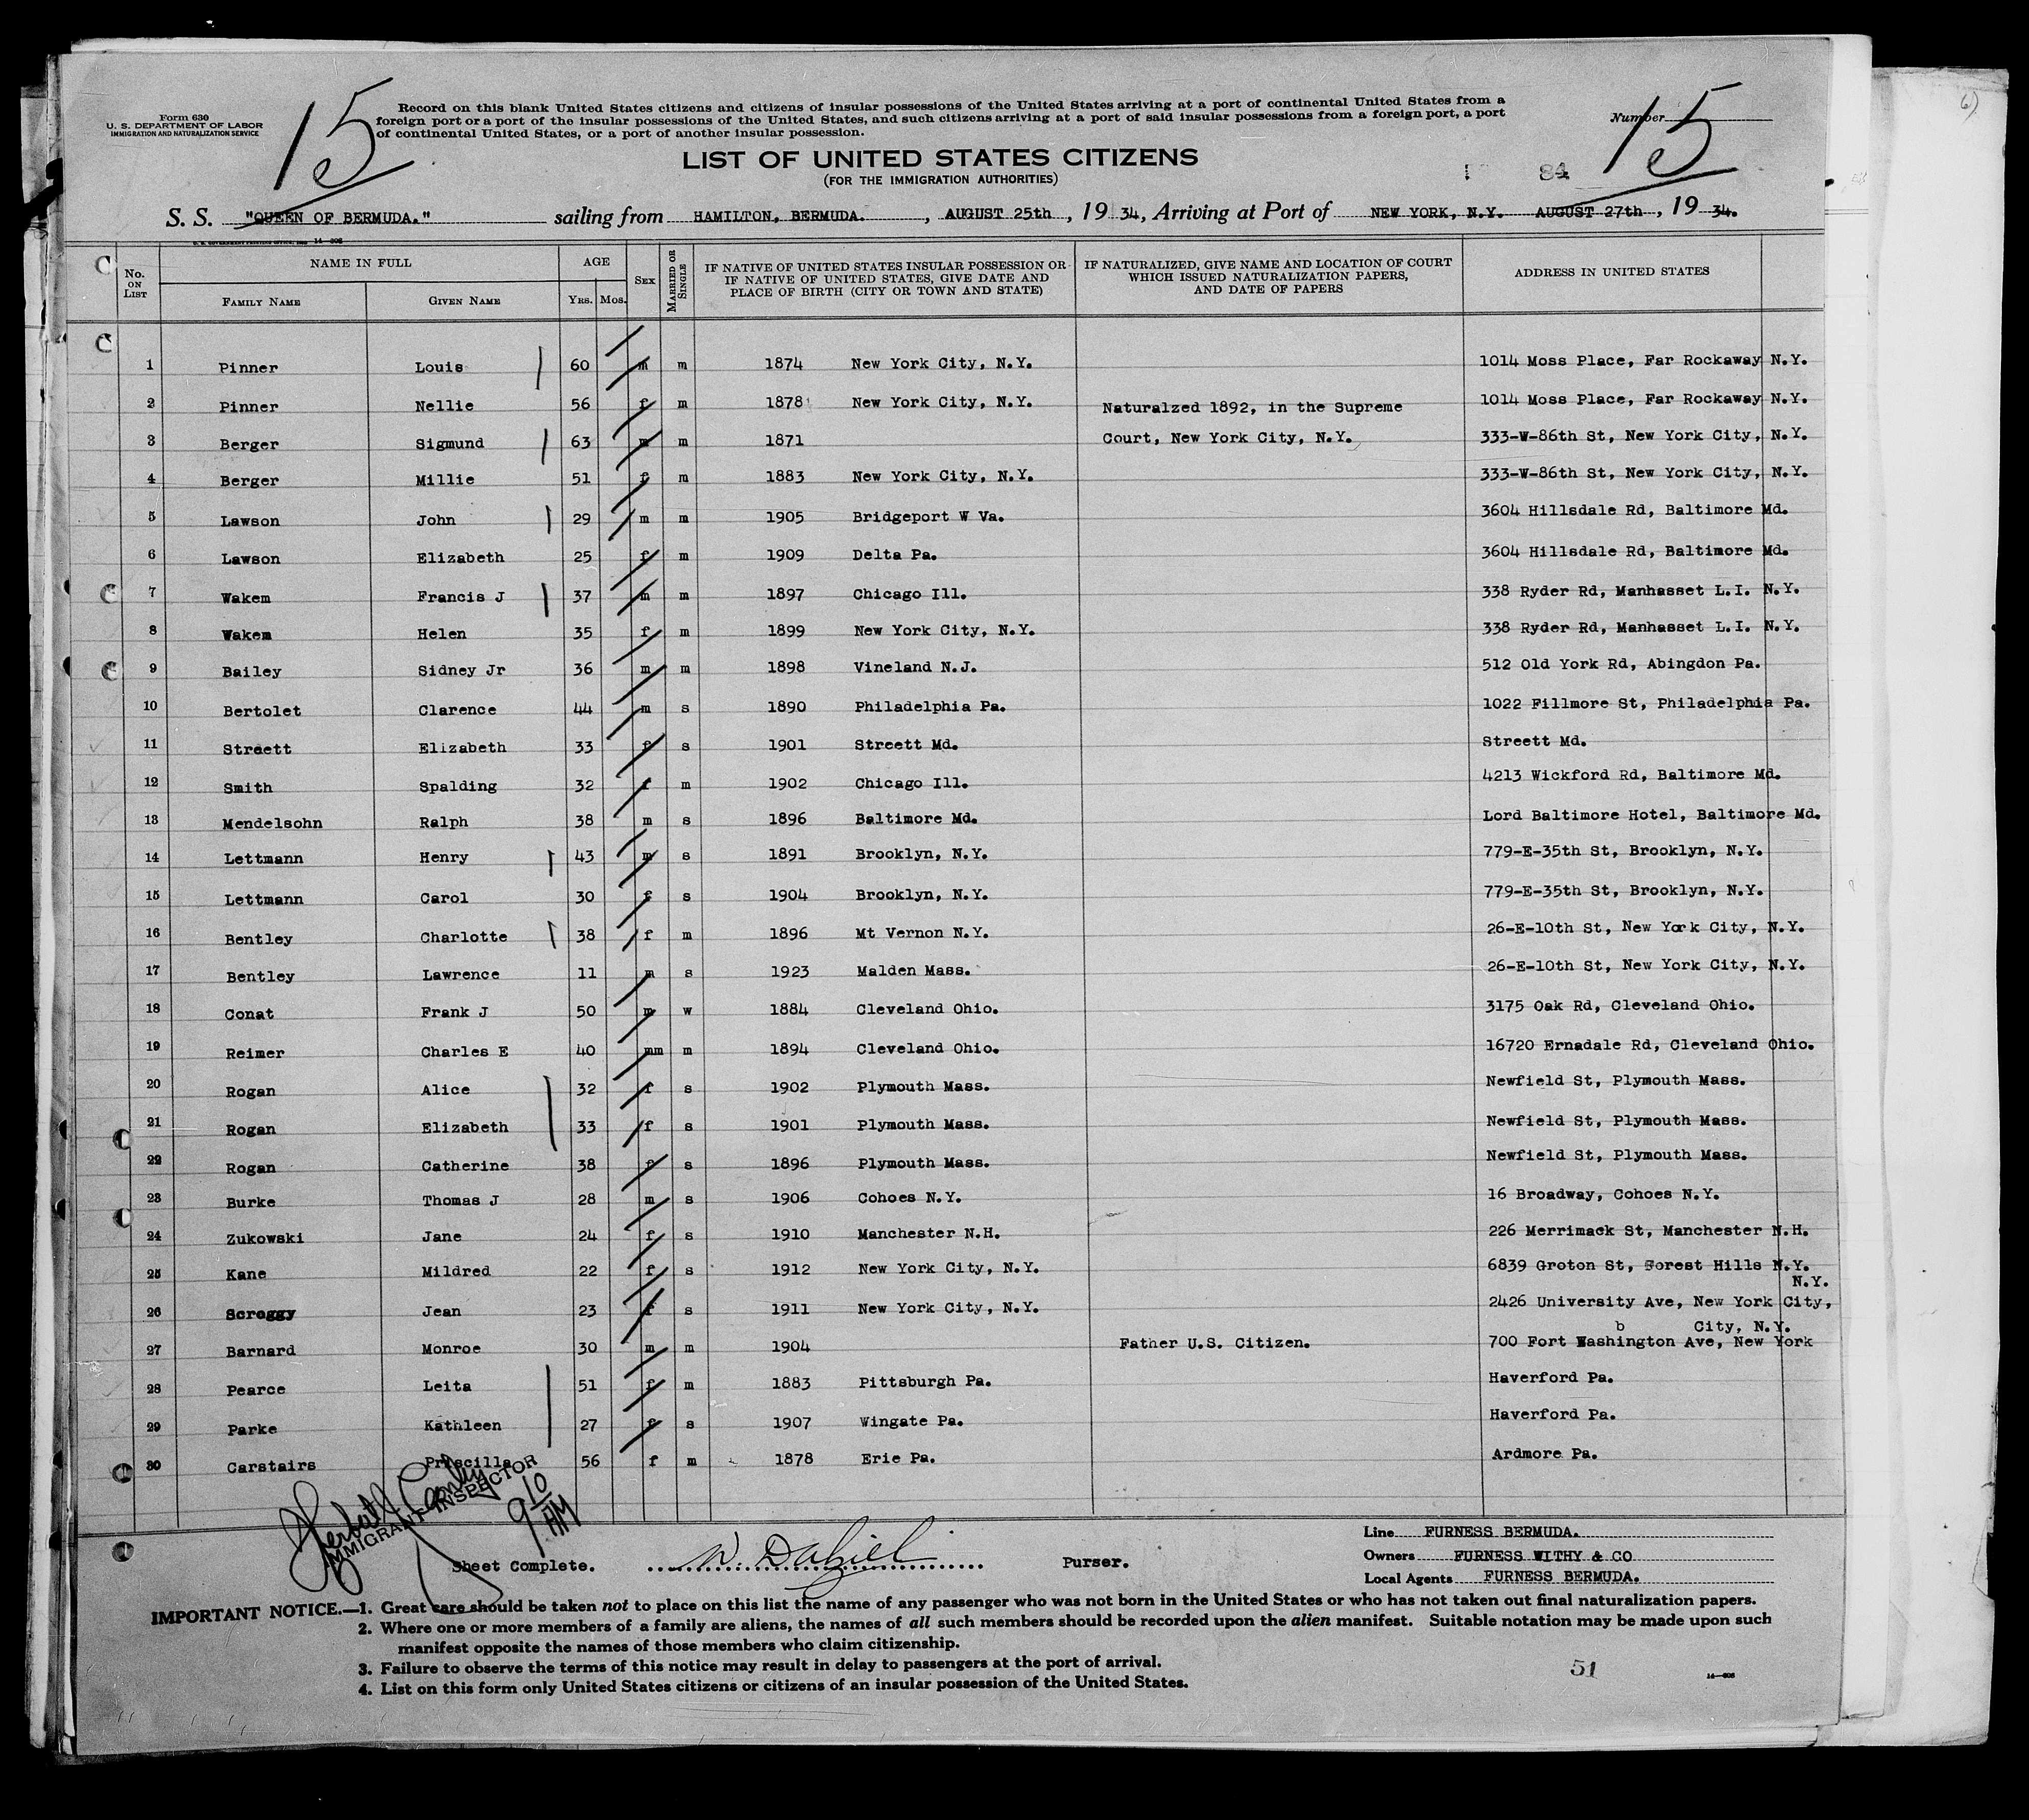 15
Form 630
U. S. DEPARTMENT OF LABOR
IMMIGRATION AND NATURALIZATION SERVICE
Record on this blank United States citizens and citizens of insular possessions of the United States arriving at a port of continental United States from a
foreign port or a port of the insular possessions of the United States, and such citizens arriving at a port of said insular possessions from a foreign port, a port
of continental United States, or a port of another insular possession.
Number 15
LIST OF UNITED STATES CITIZENS
(FOR THE IMMIGRATION AUTHORITIES)
84
S. S. "QUEEN OF BERMUDA." sailing from HAMILTON, BERMUDA. , AUGUST 25th , 19 34, Arriving at Port of NEW YORK, N.Y. AUGUST 27th , 19 34.
No. ON LIST
NAME IN FULL
FAMILY NAME GIVEN NAME
AGE
YRS. MOS.
SEX
MARRIED OR SINGLE
IF NATIVE OF UNITED STATES INSULAR POSSESSION OR
IF NATIVE OF UNITED STATES, GIVE DATE AND
PLACE OF BIRTH (CITY OR TOWN AND STATE)
IF NATURALIZED, GIVE NAME AND LOCATION OF COURT
WHICH ISSUED NATURALIZATION PAPERS,
AND DATE OF PAPERS
ADDRESS IN UNITED STATES
1 Pinner Louis 60 m m 1874 New York City, N.Y. 1014 Moss Place, Far Rockaway N.Y.
2 Pinner Nellie 56 f m 1878 New York City, N.Y. Naturalzed 1892, in the Supreme 1014 Moss Place, Far Rockaway N.Y.
3 Berger Sigmund 63 m m 1871 Court, New York City, N.Y. 333-W-86th St, New York City, N.Y.
4 Berger Millie 51 f m 1883 New York City, N.Y. 333-W-86th St, New York City, N.Y.
5 Lawson John 29 m m 1905 Bridgeport W Va. 3604 Hillsdale Rd, Baltimore Md.
6 Lawson Elizabeth 25 f m 1909 Delta Pa. 3604 Hillsdale Rd, Baltimore Md.
7 Wakem Francis J 37 m m 1897 Chicago Ill. 338 Ryder Rd, Manhasset L.I. N.Y.
8 Wakem Helen 35 f m 1899 New York City, N.Y. 338 Ryder Rd, Manhasset L.I. N.Y.
9 Bailey Sidney Jr 36 m m 1898 Vineland N.J. 512 Old York Rd, Abingdon Pa.
10 Bertolet Clarence 44 m s 1890 Philadelphia Pa. 1022 Fillmore St, Philadelphia Pa.
11 Streett Elizabeth 33 f s 1901 Streett Md. Streett Md.
12 Smith Spalding 32 f m 1902 Chicago Ill. 4213 Wickford Rd, Baltimore Md.
13 Mendelsohn Ralph 38 m s 1896 Baltimore Md. Lord Baltimore Hotel, Baltimore Md.
14 Lettmann Henry 43 m s 1891 Brooklyn, N.Y. 779-E-35th St, Brooklyn, N.Y.
15 Lettmann Carol 30 f s 1904 Brooklyn, N.Y. 779-E-35th St, Brooklyn, N.Y.
16 Bentley Charlotte 38 f m 1896 Mt Vernon N.Y. 26-E-10th St, New York City, N.Y.
17 Bentley Lawrence 11 m s 1923 Malden Mass. 26-E-10th St, New York City, N.Y.
18 Conat Frank J 50 m w 1884 Cleveland Ohio. 3175 Oak Rd, Cleveland Ohio.
19 Reimer Charles E 40 mm m 1894 Cleveland Ohio. 16720 Ernadale Rd, Cleveland Ohio.
20 Rogan Alice 32 f s 1902 Plymouth Mass. Newfield St, Plymouth Mass.
21 Rogan Elizabeth 33 f s 1901 Plymouth Mass. Newfield St, Plymouth Mass.
22 Rogan Catherine 38 f s 1896 Plymouth Mass. Newfield St, Plymouth Mass.
23 Burke Thomas J 28 m s 1906 Cohoes N.Y. 16 Broadway, Cohoes N.Y.
24 Zukowski Jane 24 f s 1910 Manchester N.H. 226 Merrimack St, Manchester N.H.
25 Kane Mildred 22 f s 1912 New York City, N.Y. 6839 Groton St, Forest Hills N.Y.
N.Y.
26 Scroggy Jean 23 f s 1911 New York City, N.Y. 2426 University Ave, New York City,
b City, N.Y.
27 Barnard Monroe 30 m m 1904 Father U.S. Citizen. 700 Fort Washington Ave, New York
28 Pearce Leita 51 f m 1883 Pittsburgh Pa. Haverford Pa.
29 Parke Kathleen 27 f s 1907 Wingate Pa. Haverford Pa.
30 Carstairs Priscilla 56 f m 1878 Erie Pa. Ardmore Pa.
IMMIGRANT INSPECTOR
9 10 AM
Sheet Complete. Purser.
Line FURNESS BERMUDA.
Owners FURNESS WITHY & CO
Local Agents FURNESS BERMUDA.
IMPORTANT NOTICE.—1. Great care should be taken not to place on this list the name of any passenger who was not born in the United States or who has not taken out final naturalization papers.
2. Where one or more members of a family are aliens, the names of all such members should be recorded upon the alien manifest. Suitable notation may be made upon such
manifest opposite the names of those members who claim citizenship.
3. Failure to observe the terms of this notice may result in delay to passengers at the port of arrival.
4. List on this form only United States citizens or citizens of an insular possession of the United States.
51